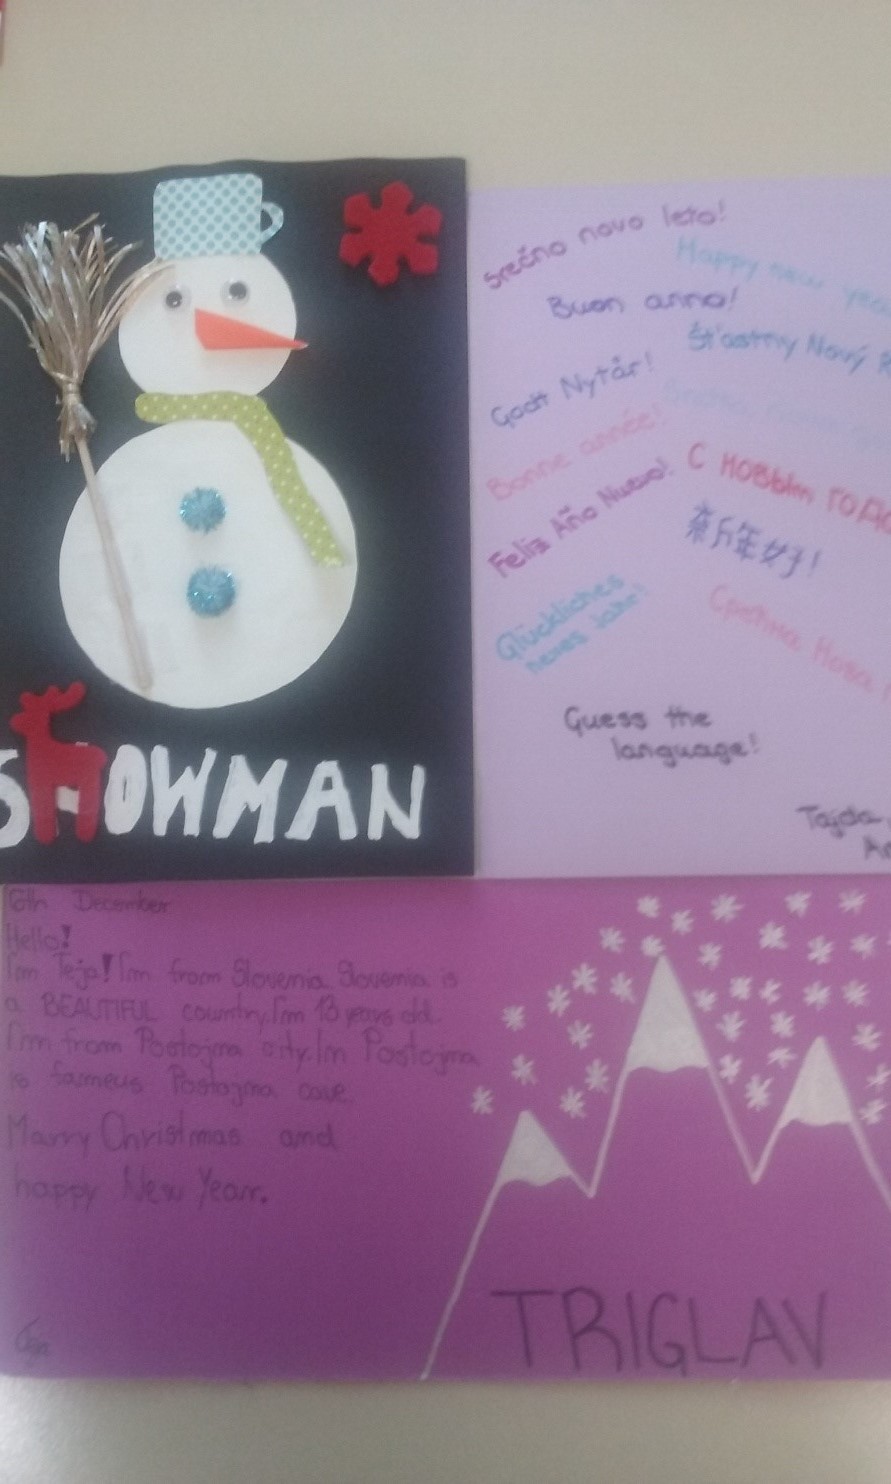 SNOWMAN
Srečno novo leto!
Happy new
Buon anno!
Šťastný Nový
Gott Nytår!
Bonne année!
С новым года
Feliz Año Nuevo!
新年好!
Glückliches
neues Jahr!
Срећна Нова
Guess the
language!
Tajda
December
Hello!
I'm Teja! I'm from Slovenia. Slovenia is
a BEAUTIFUL country. I'm 13 years old.
I'm from Postojna city. In Postojna
is fameus Postojna cave.
Marry Christmas and
happy New Year.
Teja
TRIGLAV